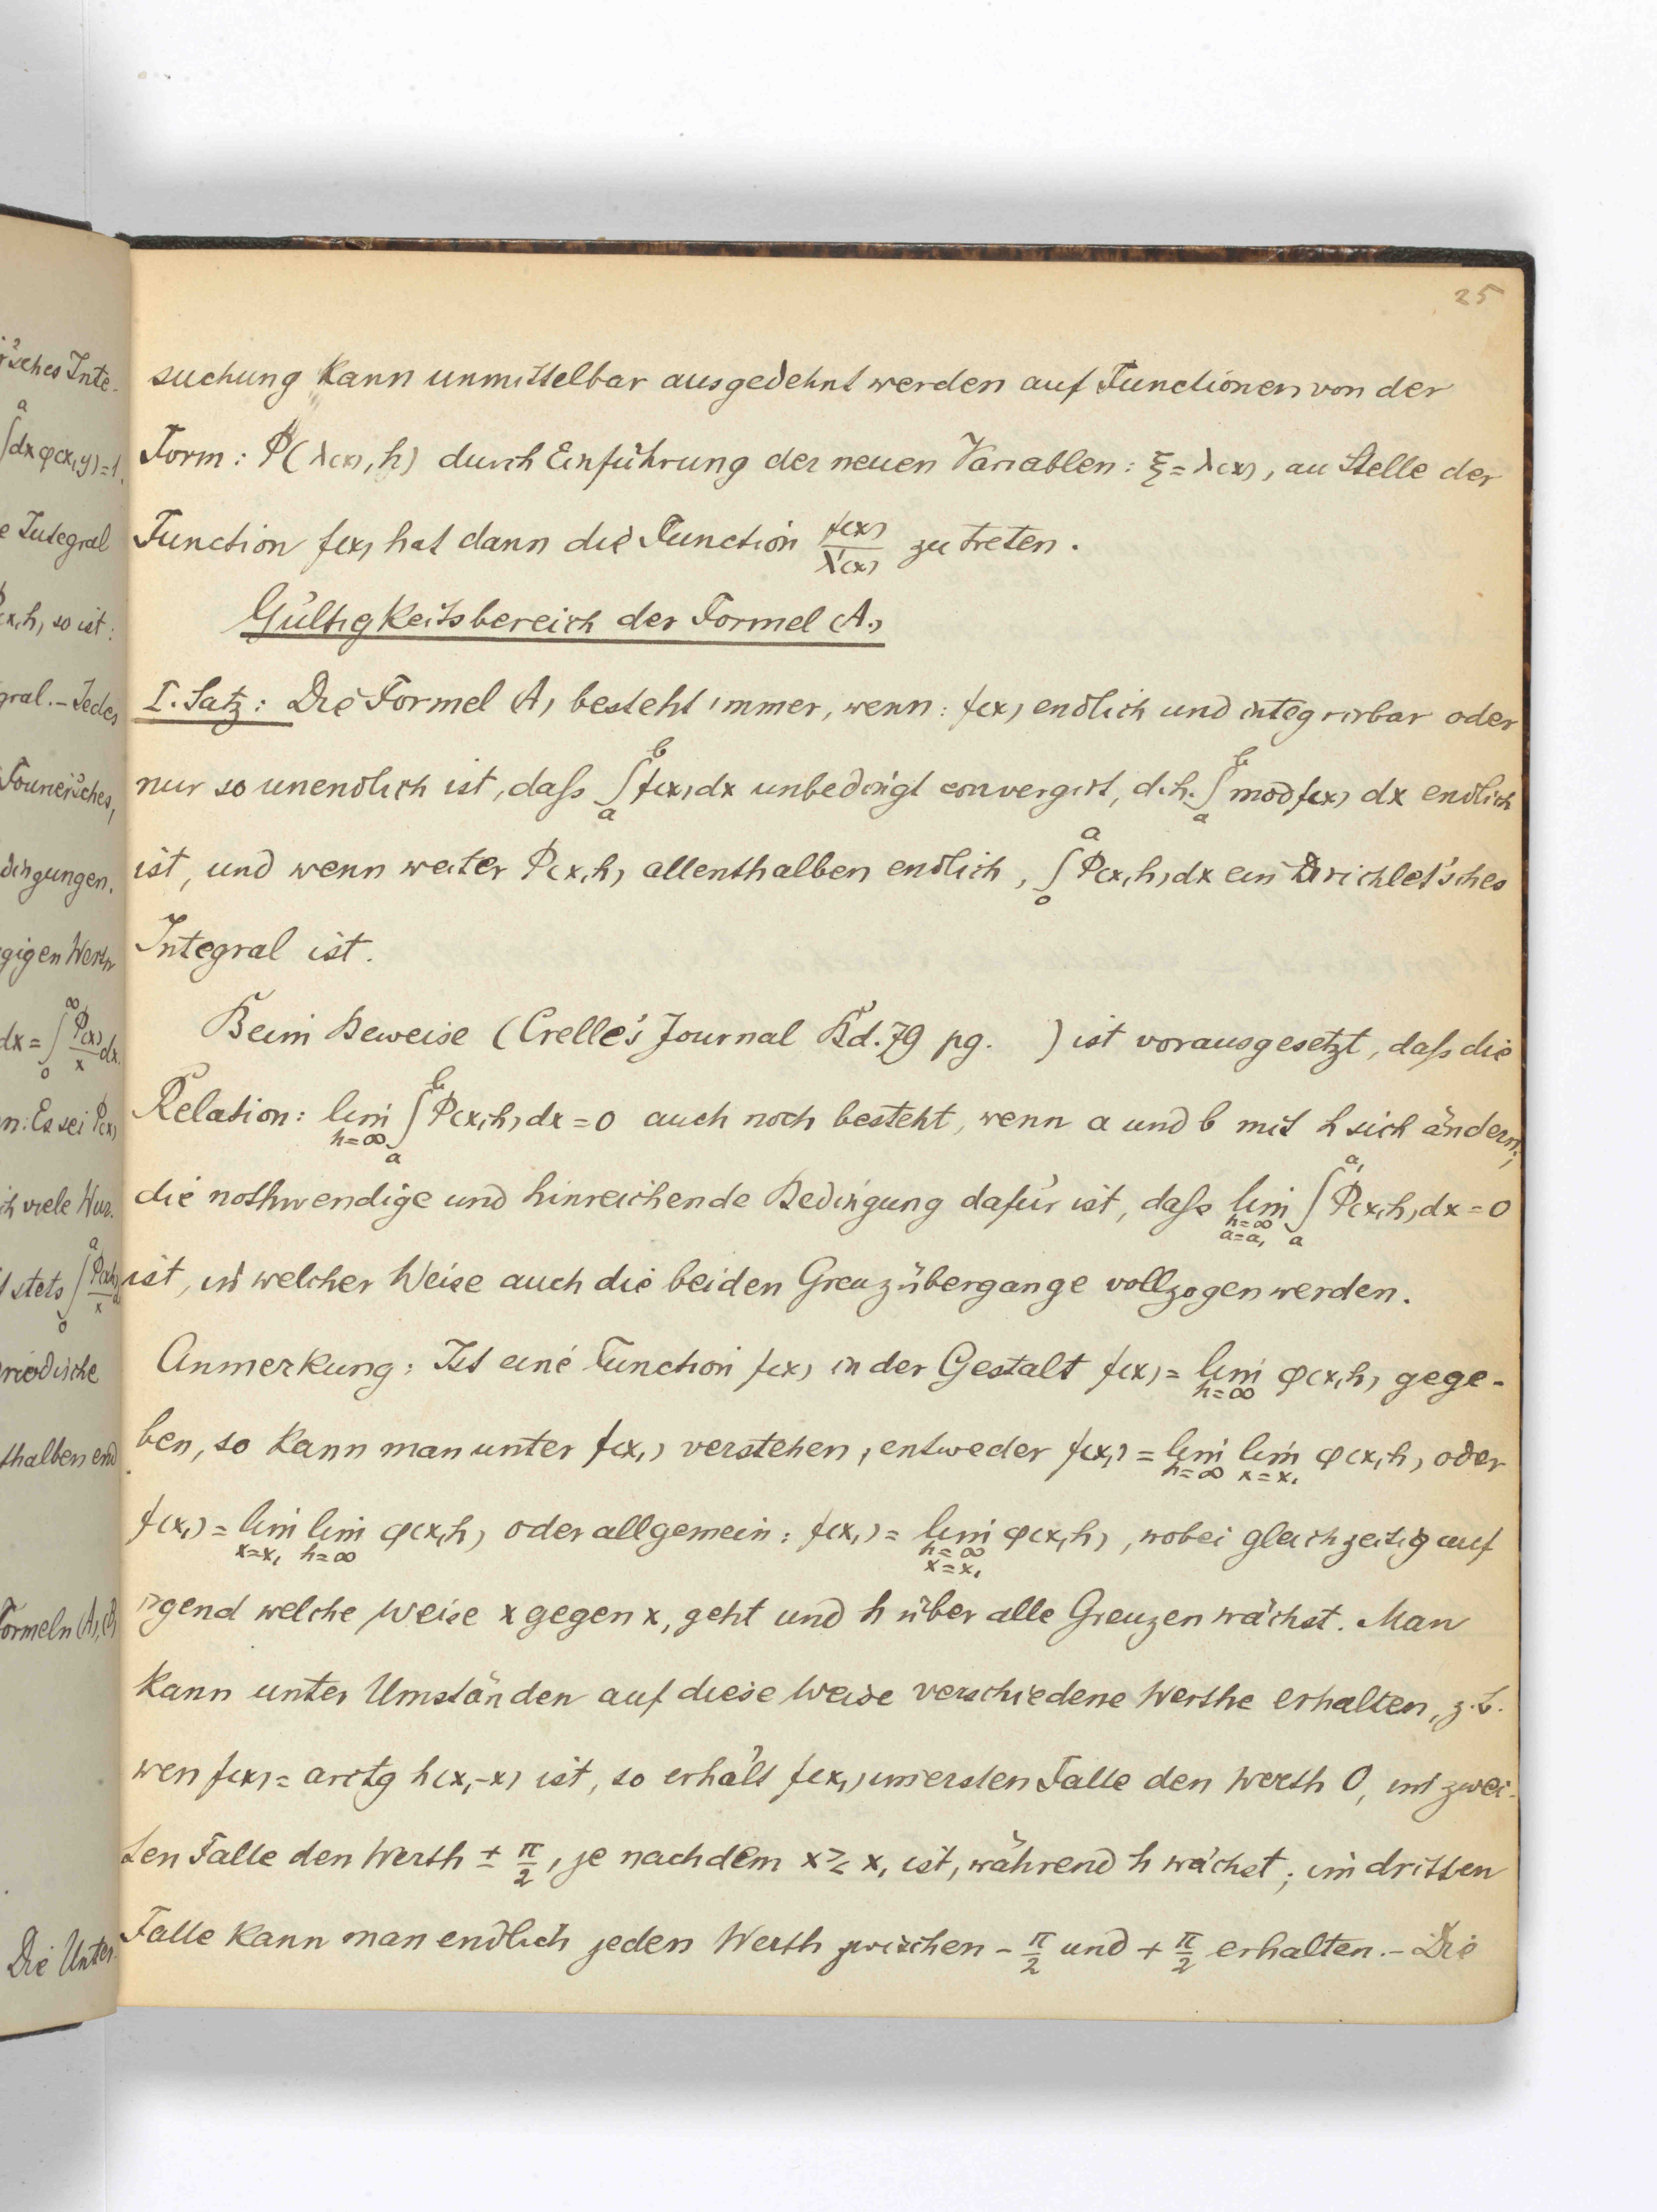 25
suchung kann unmittelbar ausgedehnt werden auf Functionen von der
Form: Φ(λ(x), h) durch Einführung der neuen Variablen: ξ = λ(x), an Stelle der
Function f(x) hat dann die Function f(x)/λ'(x) zu treten.
Gültigkeitsbereich der Formel (A.)
I. Satz: Die Formel (A) besteht immer, wenn: f(x) endlich und integrirbar oder
nur so unendlich ist, daſs ∫_a^b f(x) dx unbedingt convergirt, d.h. ∫_a^b mod f(x) dx endlich
ist, und wenn weiter Φ(x, h) allenthalben endlich, ∫_0^a Φ(x, h) dx ein Dirichlet'sches
Integral ist.
Beim Beweise (Crelle's Journal Bd. 79 pg. ) ist vorausgesetzt, daſs die
Relation: lim_{h=∞} ∫_a^b Φ(x, h) dx = 0 auch noch besteht, wenn a und b mit h sich ändern;
die nothwendige und hinreichende Bedingung dafür ist, daſs lim_{h=∞, a=a₁} ∫_a^{a₁} Φ(x, h) dx = 0
ist, in welcher Weise auch die beiden Grenzübergange vollzogen werden.
Anmerkung: Ist eine Function f(x) in der Gestalt f(x) = lim_{h=∞} φ(x, h) gege-
ben, so kann man unter f(x₁) verstehen, entweder f(x₁) = lim_{h=∞} lim_{x=x₁} φ(x, h) oder
f(x₁) = lim_{x=x₁} lim_{h=∞} φ(x, h) oder allgemein: f(x₁) = lim_{h=∞, x=x₁} φ(x, h), wobei gleichzeitig auf
irgend welche Weise x gegen x₁ geht und h über alle Grenzen wächst. Man
kann unter Umständen auf diese Weise verschiedene Werthe erhalten, z.B.
wen f(x) = arctg h(x₁-x) ist, so erhält f(x₁) im ersten Falle den Werth 0, im zwei-
ten Falle den Werth ± π/2, je nachdem x ≷ x₁ ist, während h wächst; im dritten
Falle kann man endlich jeden Werth zwischen - π/2 und + π/2 erhalten. - Die